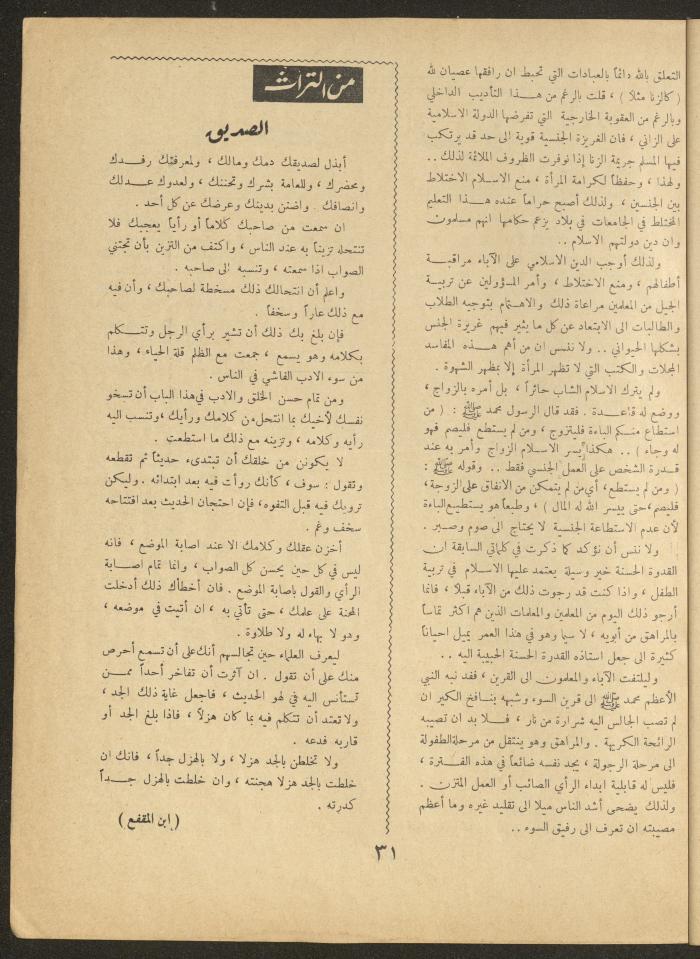 التعلق بالله دائماً بالعبادات التي تحبط ان رافقها عصيان لله
(كالزنا مثلاً) ، قلت بالرغم من هذا التأديب الداخلي
وبالرغم من العقوبة الخارجية التي تفرضها الدولة الاسلامية
على الزاني ، فان الغريزة الجنسية قوية الى حد قد يرتكب
فيها المسلم جريمة الزنا إذا توفرت الظروف الملائمة لذلك ..
ولهذا ، وحفظاً لكرامة المرأة ، منع الاسلام الاختلاط
بين الجنسين ، ولذلك أصبح حراماً عنده هذا التعليم
المختلط في الجامعات في بلاد يزعم حكامها انهم مسلمون
وان دين دولتهم الاسلام ..
ولذلك أوجب الدين الاسلامي على الآباء مراقبة
أطفالهم ، ومنع الاختلاط ، وأمر المسؤولين عن تربية
الجيل من المعلمين مراعاة ذلك والاهتمام بتوجيه الطلاب
والطالبات الى الابتعاد عن كل ما يثير فيهم غريزة الجنس
بشكلها الحيواني .. ولا ننس ان من أهم هذه المفاسد
المجلات والكتب التي لا تظهر المرأة إلا بمظهر الشهوة .
ولم يترك الاسلام الشاب حائراً ، بل أمره بالزواج ،
ووضع له قاعدة . فقد قال الرسول محمد ﷺ : ( من
استطاع منكم الباءة فليتزوج ، ومن لم يستطع فليصم فهو
له وجاء ) .. هكذا يسر الاسلام الزواج وأمر به عند
قدرة الشخص على العمل الجنسي فقط .. وقوله ﷺ :
( ومن لم يستطع ، أي من لم يتمكن من الانفاق على الزوجة ،
فليصم ، حتى ييسر الله له المال ) ، وطبعاً هو يستطيع الباءة
لأن عدم الاستطاعة الجنسية لا يحتاج الى صوم وصبر .
ولا ننس أن نؤكد كما ذكرت في كلماتي السابقة ان
القدوة الحسنة خير وسيلة يعتمد عليها الاسلام في تربية
الطفل ، واذا كنت قد رجوت ذلك من الآباء قبلاً ، فانما
أرجو ذلك اليوم من المعلمين والمعلمات الذين هم اكثر تماساً
بالمراهق من أبويه ، لا سيما وهو في هذا العمر يميل احياناً
كثيرة الى جعل استاذه القدرة الحسنة الحبيبة اليه ..
وليلتفت الآباء والمعلمون الى القرين ، فقد نبه النبي
الأعظم محمد ﷺ الى قرين السوء وشبهه بنافخ الكير ان
لم تصب الجالس اليه شرارة من نار ، فلا بد ان تصيبه
الرائحة الكريهة . والمراهق وهو ينتقل من مرحلة الطفولة
الى مرحلة الرجولة ، يجد نفسه ضائعاً في هذه الفترة ،
فليس له قابلية ابداء الرأي الصائب أو العمل المتزن .
ولذلك يضحى أشد الناس ميلا الى تقليد غيره وما أعظم
مصيبته ان تعرف الى رفيق السوء ..
من التراث
الصديق
أبذل لصديقك دمك ومالك ، ولمعرفتك رفدك
ومحضرك ، وللعامة بشرك وتحننك ، ولعدوك عدلك
وانصافك . واضنن بدينك وعرضك عن كل أحد .
ان سمعت من صاحبك كلاماً أو رأياً يعجبك فلا
تنتحله تزيناً به عند الناس ، واكتف من التزين بأن تجتني
الصواب اذا سمعته ، وتنسبه الى صاحبه .
واعلم أن انتحالك ذلك مسخطة لصاحبك ، وأن فيه
مع ذلك عاراً وسخفاً .
فإن بلغ بك ذلك أن تشير برأي الرجل وتتكلم
بكلامه وهو يسمع ، جمعت مع الظلم قلة الحياء ، وهذا
من سوء الادب الفاشي في الناس .
ومن تمام حسن الخلق والادب في هذا الباب أن تسخو
نفسك لأخيك بما انتحل من كلامك ورأيك ، وتنسب اليه
رأيه وكلامه ، وتزينه مع ذلك ما استطعت .
لا يكونن من خلقك أن تبتدىء حديثاً ثم تقطعه
وتقول : سوف ، كأنك روأت فيه بعد ابتدائه . وليكن
ترويك فيه قبل التفوه ، فإن احتجان الحديث بعد افتتاحه
سخف وغم .
أخزن عقلك وكلامك الا عند اصابة الموضع ، فانه
ليس في كل حين يحسن كل الصواب ، وانما تمام اصابة
الرأي والقول باصابة الموضع . فان أخطأك ذلك أدخلت
المحنة على علمك ، حتى تأتي به ، ان أتيت في موضعه ،
وهو لا بهاء له ولا طلاوة .
ليعرف العلماء حين تجالسهم أنك على أن تسمع أحرص
منك على أن تقول . ان آثرت أن تفاخر أحداً ممن
تستأنس اليه في لهو الحديث ، فاجعل غاية ذلك الجد ،
ولا تعتد أن تتكلم فيه بما كان هزلاً ، فاذا بلغ الجد أو
قاربه فدعه .
ولا تخلطن بالجد هزلا ، ولا بالهزل جداً ، فانك ان
خلطت بالجد هزلا هجنته ، وان خلطت بالهزل جداً
كدرته .
( ابن المقفع )
٣١